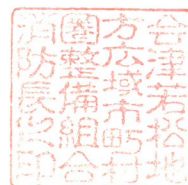 会津若松地
方広域市町村
圏整備組合
消防長之印